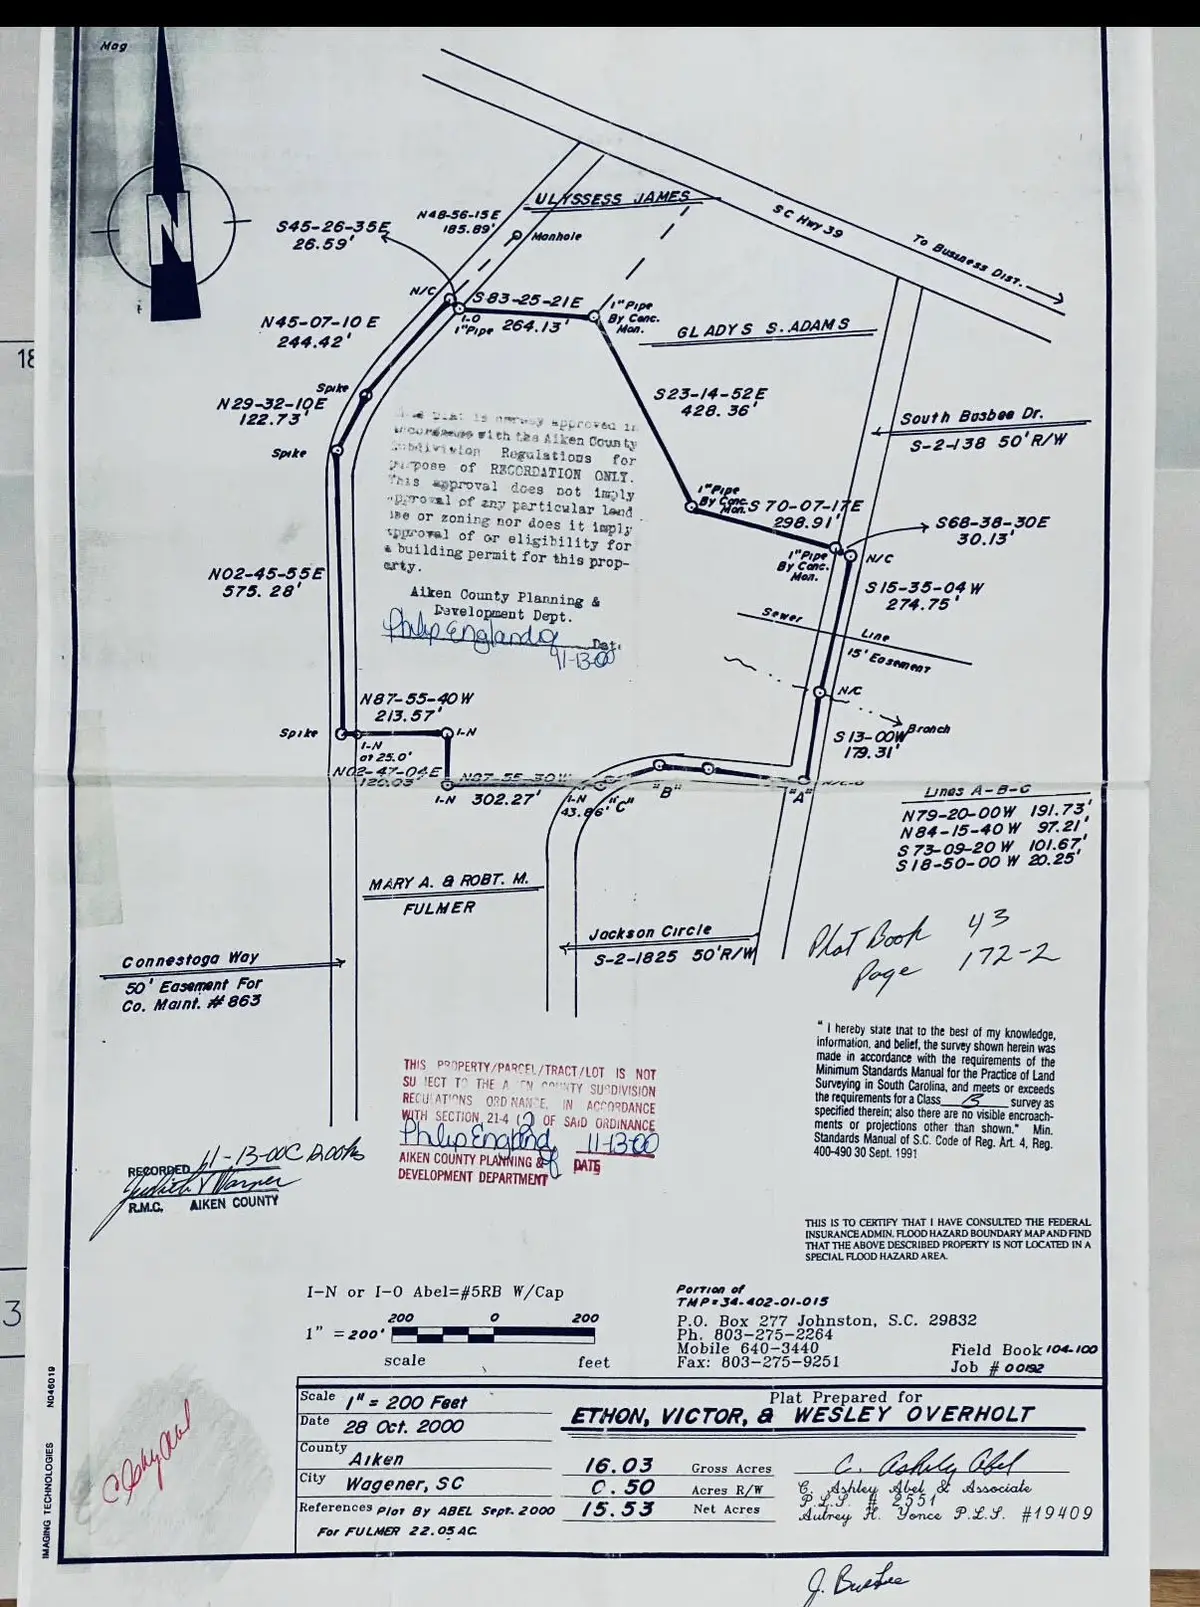 Mag
N
ULYSSESS JAMES
SC Hwy 39
To Business Dist.
N48-56-15E
185.89'
Manhole
S45-26-35E
26.59'
N/C
S83-25-21E
264.13'
I-O
1"Pipe
1"Pipe
By Conc.
Mon.
GLADYS S. ADAMS
N45-07-10E
244.42'
Spike
N29-32-10E
122.73'
Spike
S23-14-52E
428.36'
South Busbee Dr.
S-2-138 50'R/W
plat is hereby approved in
accordance with the Aiken County
Subdivision Regulations for
purpose of RECORDATION ONLY.
This approval does not imply
approval of any particular land
use or zoning nor does it imply
approval of or eligibility for
a building permit for this prop-
erty.
Aiken County Planning &
Development Dept.
Philip England
Date
11-13-00
1"Pipe
By Conc.
Mon.
S70-07-17E
298.91'
1"Pipe
By Conc.
Mon.
S68-38-30E
30.13'
N/C
S15-35-04W
274.75'
N02-45-55E
575.28'
Sewer Line
15' Easement
N/C
Branch
S13-00W
179.31'
N87-55-40W
213.57'
Spike
I-N
I-N
at 25.0'
N02-47-04E
120.03'
N87-55-30W
I-N
302.27'
I-N
43.86'
"C"
"B"
"A"
Lines A-B-C
N79-20-00W 191.73'
N84-15-40W 97.21'
S73-09-20W 101.67'
S18-50-00W 20.25'
MARY A. & ROBT. M.
FULMER
Jackson Circle
S-2-1825 50'R/W
Connestoga Way
50' Easement For
Co. Maint. # 863
Plat Book 43
Page 172-2
"I hereby state that to the best of my knowledge,
information, and belief, the survey shown herein was
made in accordance with the requirements of the
Minimum Standards Manual for the Practice of Land
Surveying in South Carolina, and meets or exceeds
the requirements for a Class B survey as
specified therein; also there are no visible encroach-
ments or projections other than shown." Min.
Standards Manual of S.C. Code of Reg. Art. 4, Reg.
400-490 30 Sept. 1991
THIS PROPERTY/PARCEL/TRACT/LOT IS NOT
SUBJECT TO THE AIKEN COUNTY SUBDIVISION
REGULATIONS ORDINANCE, IN ACCORDANCE
WITH SECTION 21-4 (2) OF SAID ORDINANCE
Philip England 11-13-00
AIKEN COUNTY PLANNING & DATE
DEVELOPMENT DEPARTMENT
RECORDED 11-13-00
Judith V Warner
R.M.C, AIKEN COUNTY
THIS IS TO CERTIFY THAT I HAVE CONSULTED THE FEDERAL
INSURANCE ADMIN. FLOOD HAZARD BOUNDARY MAP AND FIND
THAT THE ABOVE DESCRIBED PROPERTY IS NOT LOCATED IN A
SPECIAL FLOOD HAZARD AREA.
I-N or I-O Abel=#5RB W/Cap
200 0 200
1" = 200'
scale feet
Portion of
TMP# 34-402-01-015
P.O. Box 277 Johnston, S.C. 29832
Ph. 803-275-2264
Mobile 640-3440
Fax: 803-275-9251
Field Book 104-100
Job # 00192
Scale 1" = 200 Feet
Date 28 Oct. 2000
County Aiken
City Wagener, SC
References Plat By ABEL Sept. 2000
For FULMER 22.05 AC.
Plat Prepared for
ETHON, VICTOR, & WESLEY OVERHOLT
16.03 Gross Acres
0.50 Acres R/W
15.53 Net Acres
C. Ashley Abel
C. Ashley Abel & Associate
P.L.S. # 2551
Autrey H. Yonce P.L.S. #19409
C Ashley Abel
IMAGING TECHNOLOGIES N046019
J. Busbee
18
3